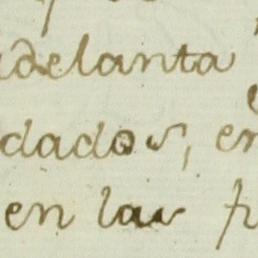 adelanta
dados, en
en las